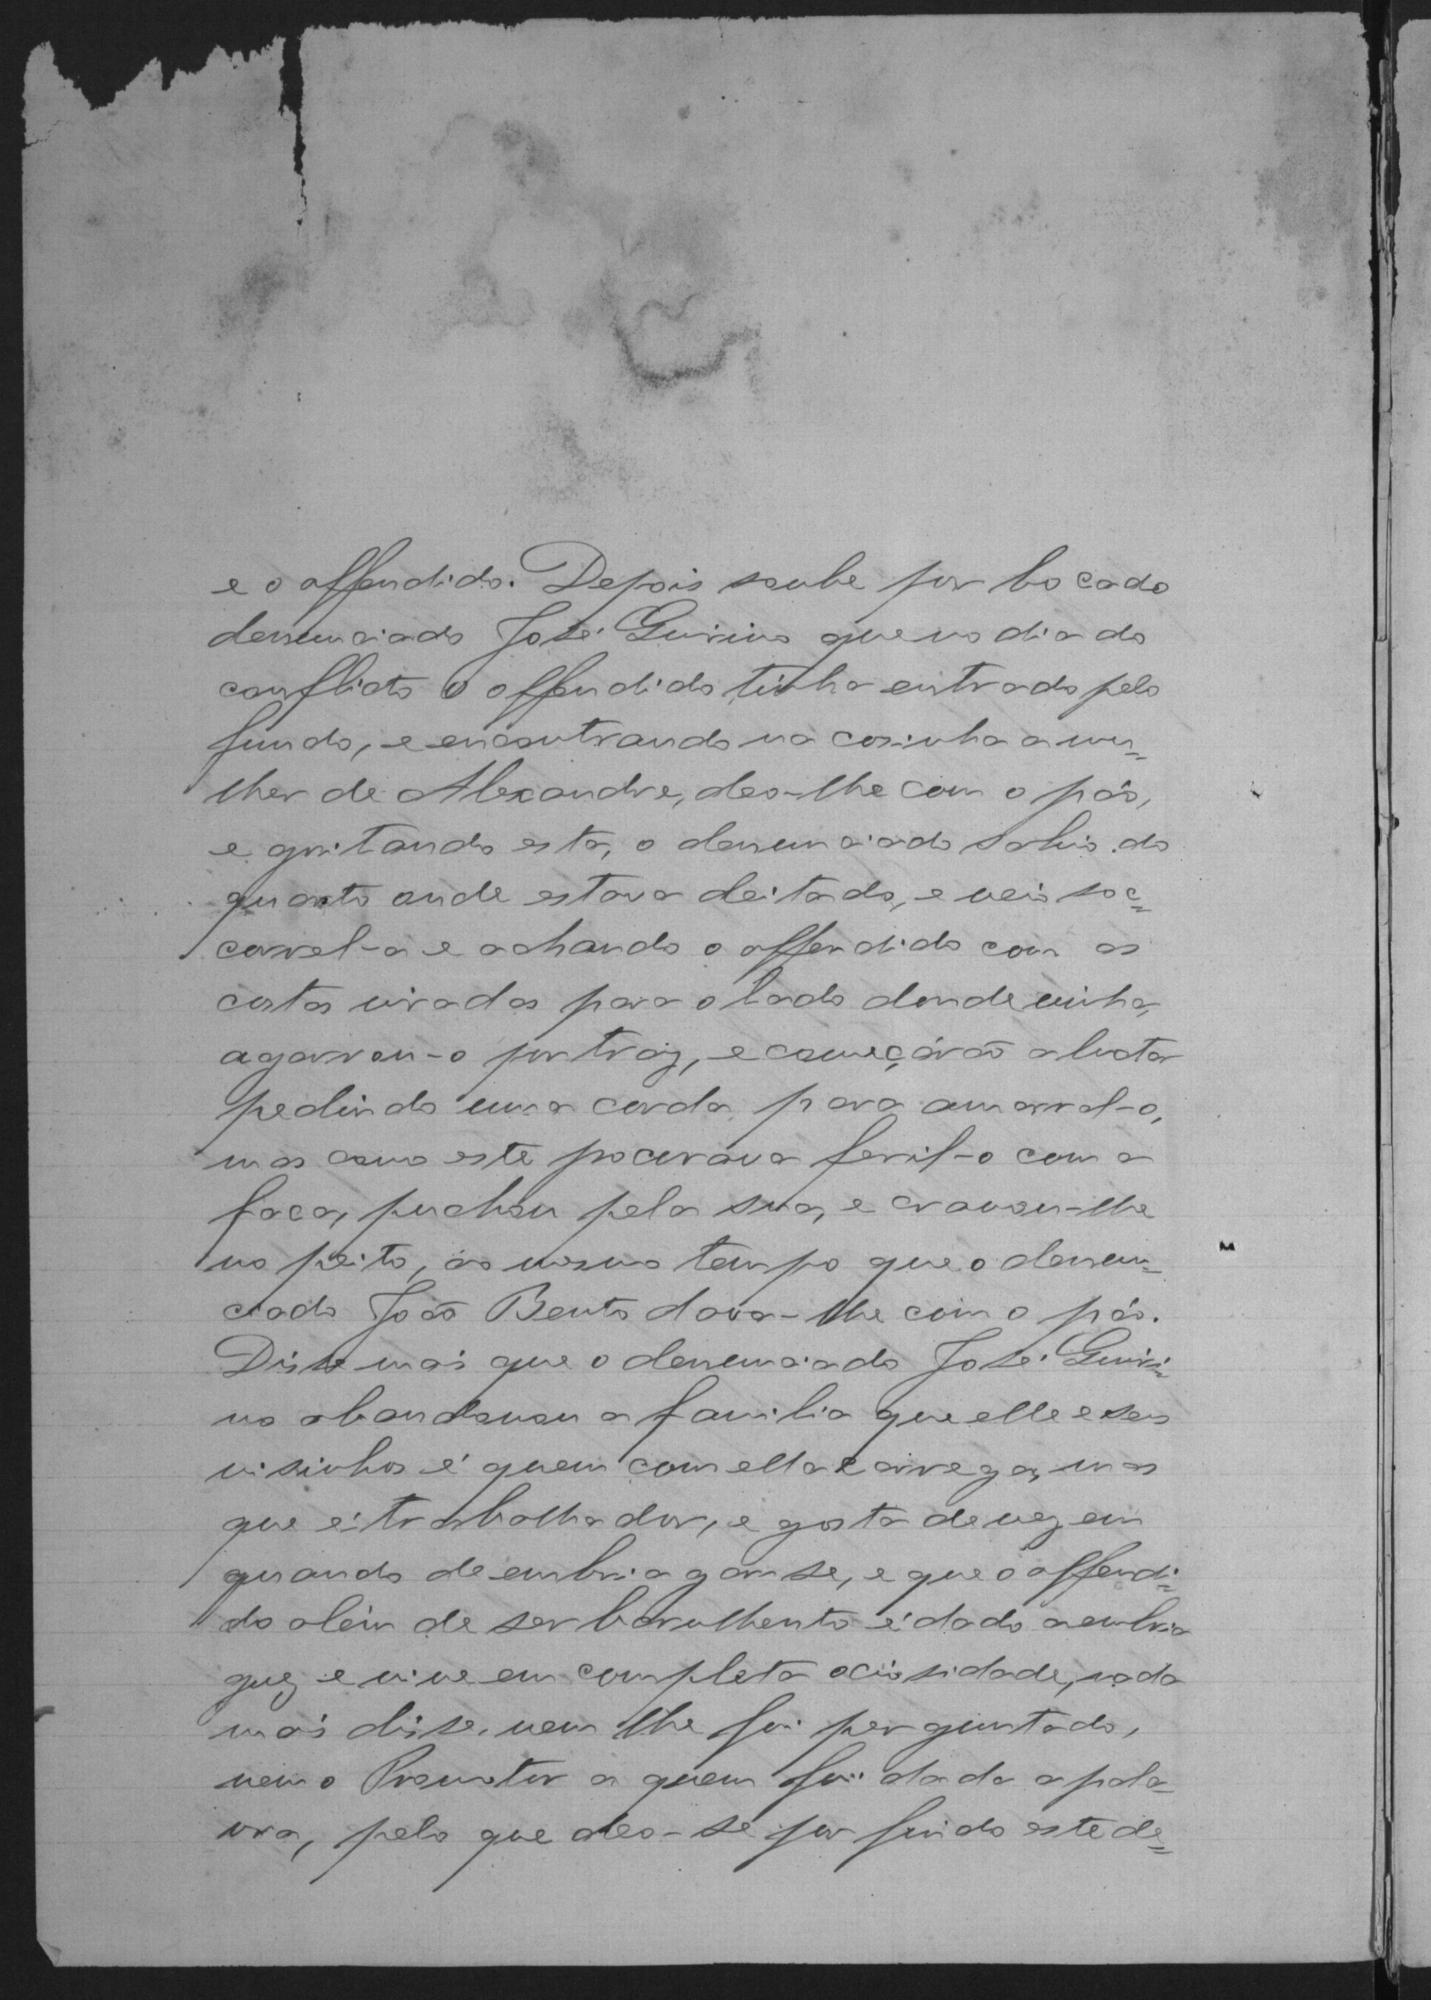 e o offendido. Depois soube por bocado
denunciado José Guirino que no dia do
conflicto o offendido tinha entrado pelo
fundo, e encontrando na cosinha a mu=
lher de Alexandre, deo-lhe com o páo,
e gritando esta, o denunciado sahio do
quarto onde estava deitado, e veio soc=
correl-a e achando o offendido com as
costas viradas para o lado donde vinha,
agarrou-o por traz, e começárão a luctar
pedindo uma corda para amarral-o,
mas como este procurava feril-o com a
faca, puchou pela sua, e cravou-lhe
no peito, ao mesmo tempo que o denun=
ciado João Bento dava-lhe com o páo.
Disse mais que o denunciado José Guiri=
no abandonou a familia que elle e seus
visinhos é quem com ella carrega, mas
que é trabalhador, e gosta de vez em
quando de embriagar-se, e que o offendi=
do além de ser barulhento é dado a embria
guez e vive em completa ociosidade, nada
mais disse, nem lhe foi perguntado,
nem o Promotor a quem foi dada a pala=
vra, pelo que deo-se por findo este de=